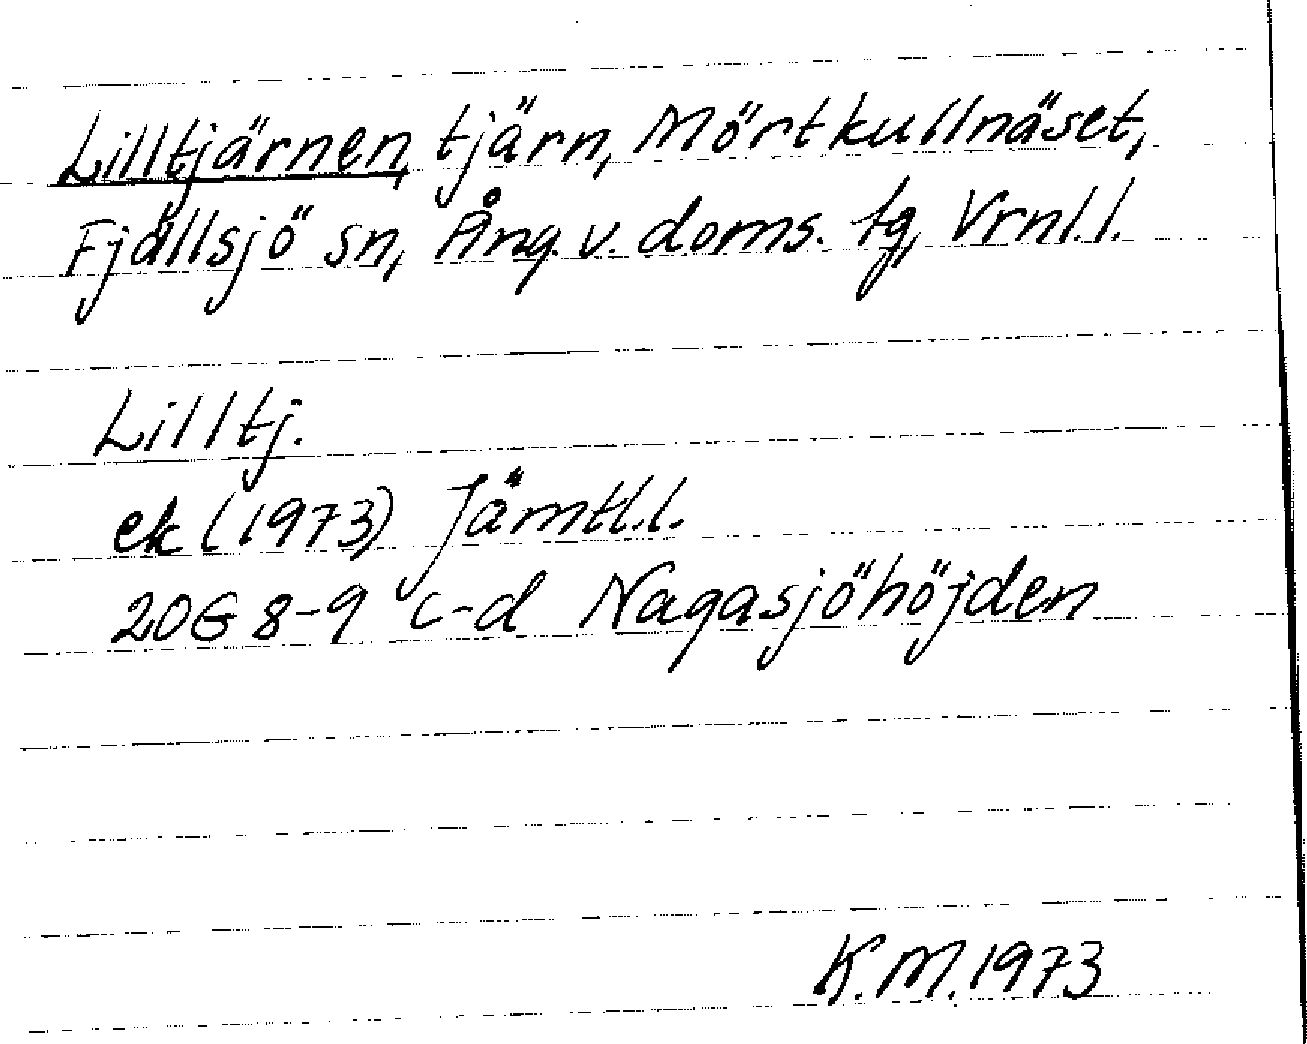 Lilltjärnen, tjärn, Mörtkullnäset,
Fjällsjö sn, Ång. v. doms. tg, Vrnl.l.
Lilltj.
ek (1973) Jämtl.l.
20G 8-9 c-d Nagasjöhöjden
K.M.1973